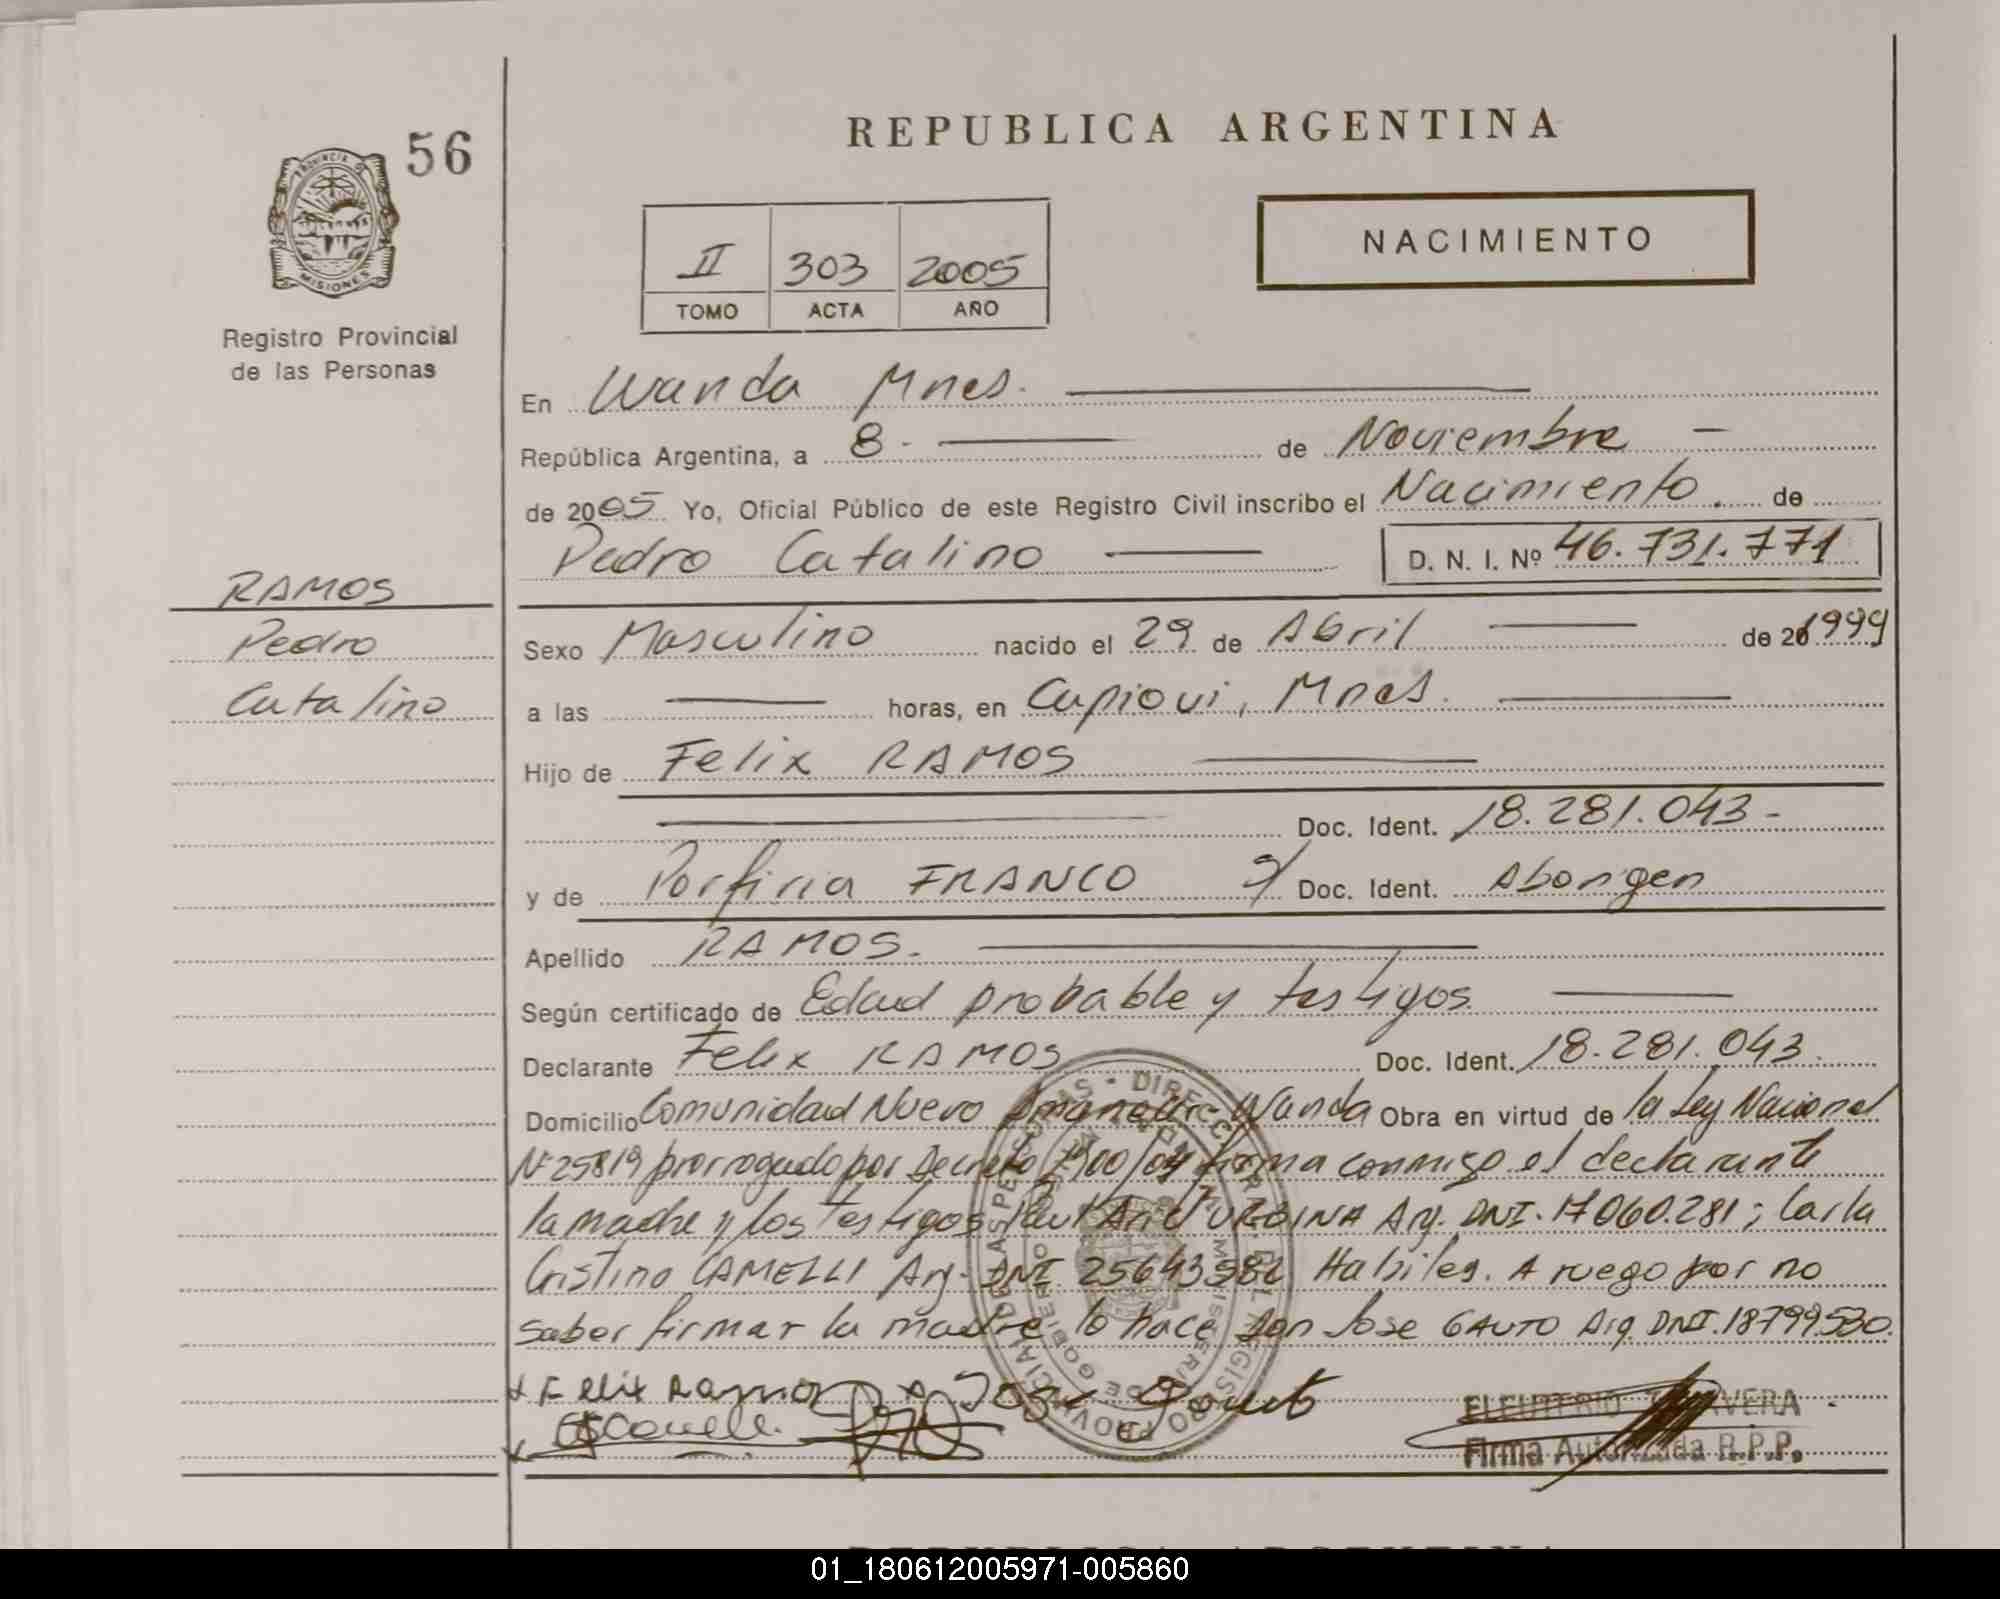 REPUBLICA ARGENTINA
56
PROVINCIA DE
MISIONES
NACIMIENTO
II 303 2005
TOMO ACTA AÑO
Registro Provincial
de las Personas
En Wanda Mnes.
República Argentina, a 8 - de Noviembre
de 2005 Yo, Oficial Público de este Registro Civil inscribo el Nacimiento. de
Pedro Catalino D. N. I. Nº 46.731.771
RAMOS
Pedro
Catalino
Sexo Masculino nacido el 29 de Abril de 20 1999
a las horas, en Cupioui, Mnes.
Hijo de Felix RAMOS
Doc. Ident. 18.281.043-
y de Porfiria FRANCO s/ Doc. Ident. Aborigen
Apellido RAMOS.
Según certificado de Edad probable y testigos
Declarante Felix RAMOS Doc. Ident. 18.281.043.
Domicilio Comunidad Nuevo Wanda Obra en virtud de la Ley Nacional
Nº 25819 prorrogado por Decreto 1900/04 firma conmigo el declarante
la madre y los testigos Ariel URBINA Arg. DNI. 17060.281; Carla
Cristina CAMELLI Arg. DNI. 25643 Habiles. A ruego por no
saber firmar la madre lo hace Don Jose GAUTO Arg. DNI. 18799530.
Felix Ramos Jose Gauto
Firma Autorizada R.P.P.
01_180612005971-005860